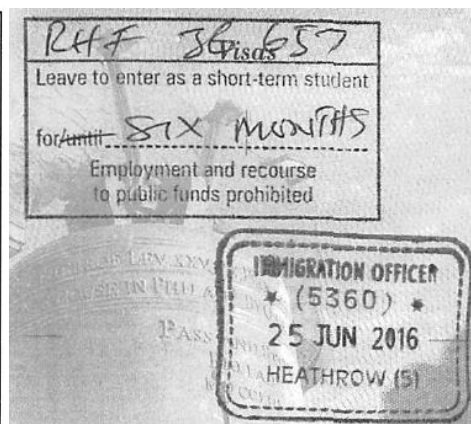 RHF 657
Visas
Leave to enter as a short-term student
for/until SIX MONTHS
Employment and recourse
to public funds prohibited
IMMIGRATION OFFICER
★ (5360) ★
25 JUN 2016
HEATHROW (5)
LEV XXV
PASS